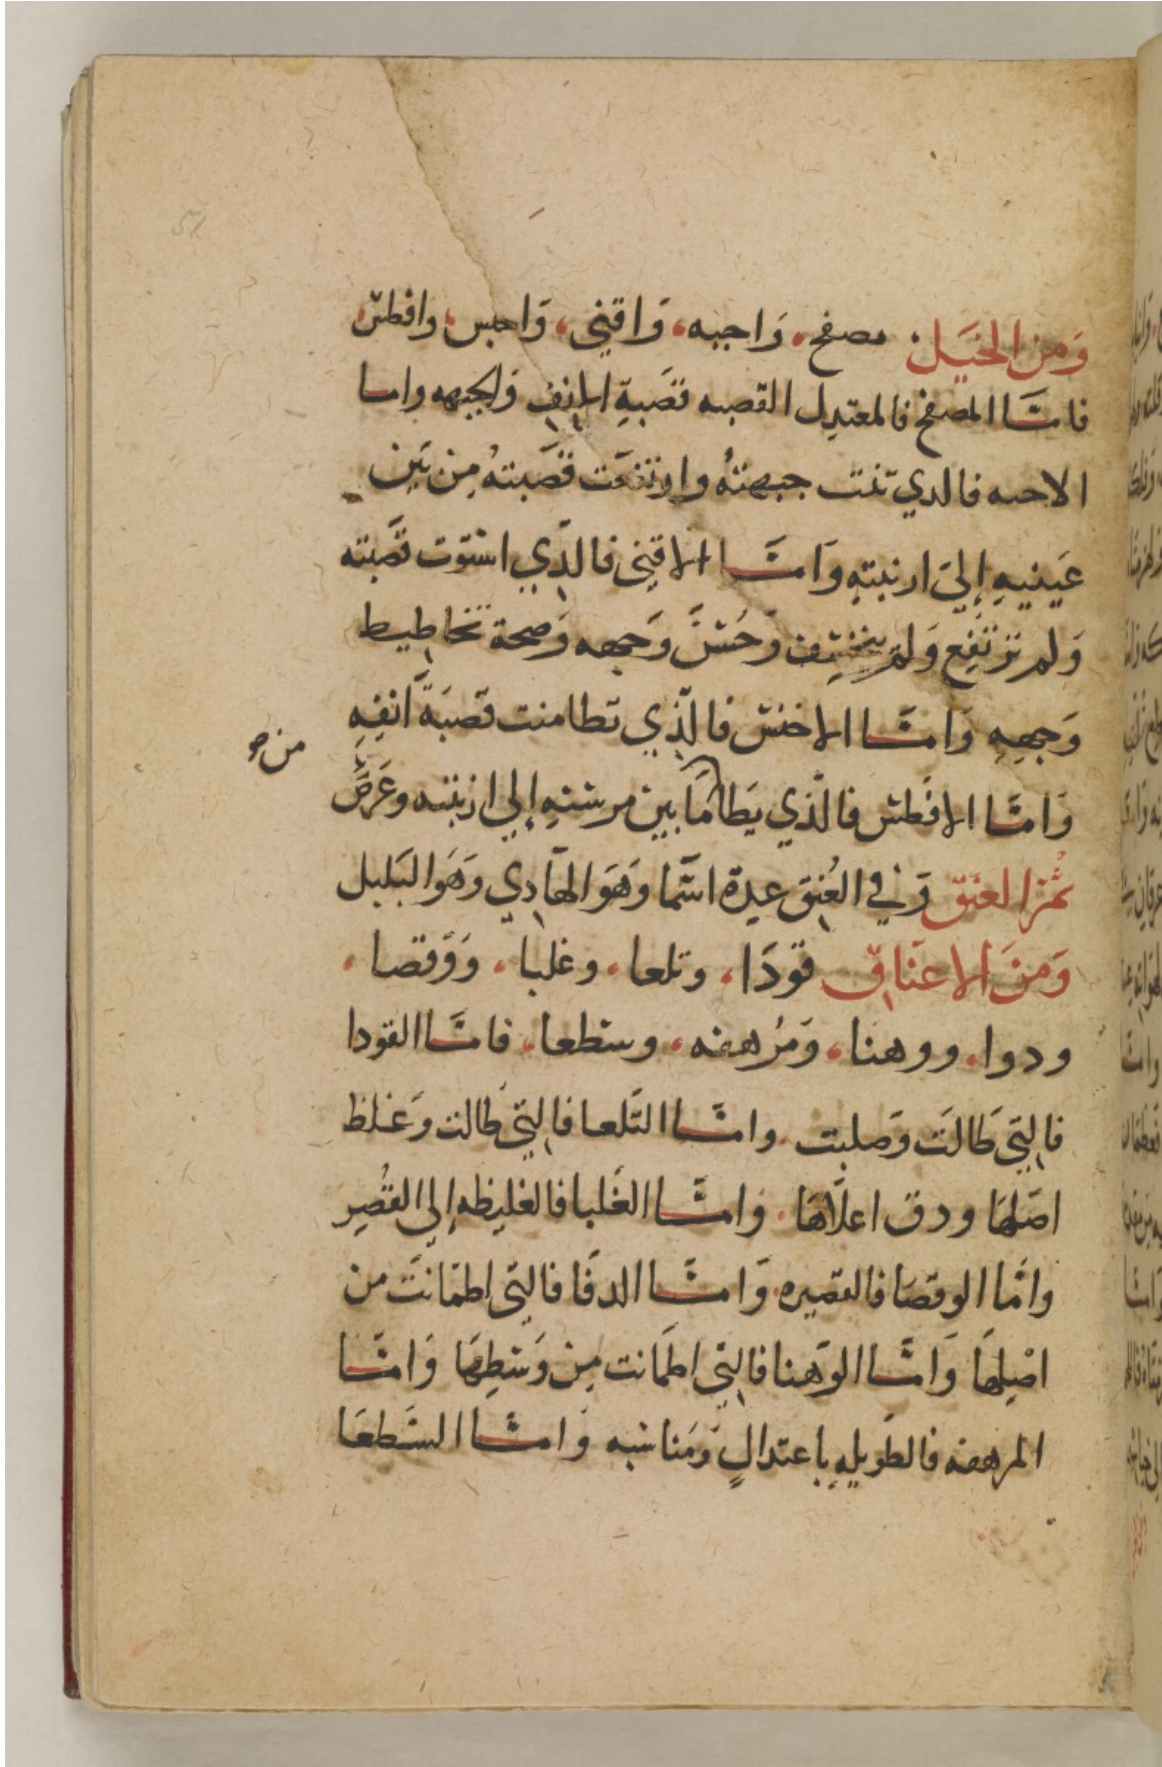 وَمن الخيَل مصفح، وَاجبه، وَاقني، وَاحبس، وافطس
فامَّا المصفح فالمعتدِل القصبه قصَبةِ الانف وَالجبهه واما
الاجبه فالدي نتت جبهتهُ وارتفعَت قصَبتهُ مِن بَين
عَينيهِ إليَ ارنبتهِ وَامَّا الاقني فالذّي استوت قصَبته
وَلم ترتَفِع وَلم ينخفِض وَحَسُنَ وَجهه وَصِحة تخاطيط
وَجههِ وَامَّا الاخنس فالّذي تطامنت قصبَةَ انفِهِ
من صو
وَامَّا الافَطس فالّذي يَطا مَا بين مرسنهِ إلي ارنبته وعَرضَ
ثُمَّ العنق وَفي العُنِق عِدة اسَما وَهَوَ الهَادي وَهَوَ البَلبل
وَمنَ الاعنَاق قودَا، وتلعا، وغلبا، وَوَقصا،
ودوا، ووهنا، وَمُرهفه، وسطعا، فامَّا القودا
فالتي طَالَت وَصلبت وامَّا التَلعا فالتي طالت وَغلظ
اصَلهَا ودق اعلَاهَا، وَامَّا الغَلبا فالغليظه إلي القُصِر
وامَّا الوقصَا فالقصيره، وَامَّا الدفَا فالتي اطمَانَت من
اصْلِهَا وَامَّا الوَهنا فالتي اطمَانت مِن وَسَطِهَا وَامَّا
المرهفه فالطَويلهِ باعتدالٍ وَمَناسبه وَامَّا السَطعَا
51